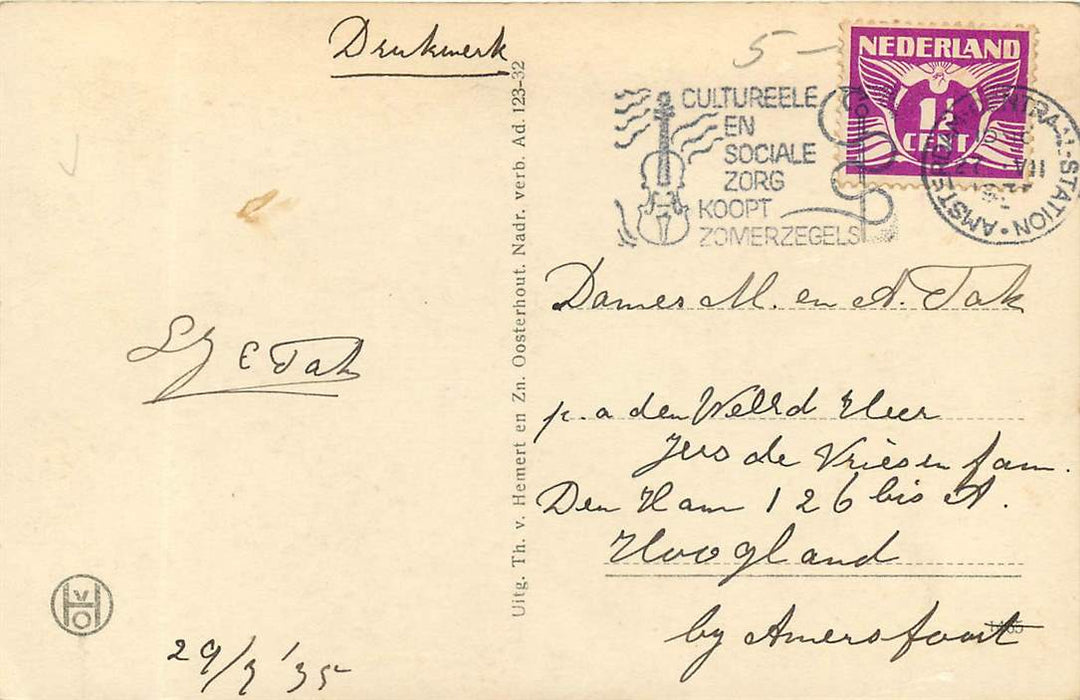 Drukwerk
5 -
NEDERLAND
1½
CENT
CULTUREELE
EN
SOCIALE
ZORG
KOOPT
ZOMERZEGELS
AMSTERDAM CENTRAAL-STATION
27 VII
Dames M. en A. Tak
p.a den WelEd Heer
de Vries en fam.
Den Ham 126 bis A.
Hoogland
by Amersfoort
E Tak
29/7 '35
Uitg. Th. v. Hemert en Zn. Oosterhout. Nadr. verb. Ad. 123-32
HVO